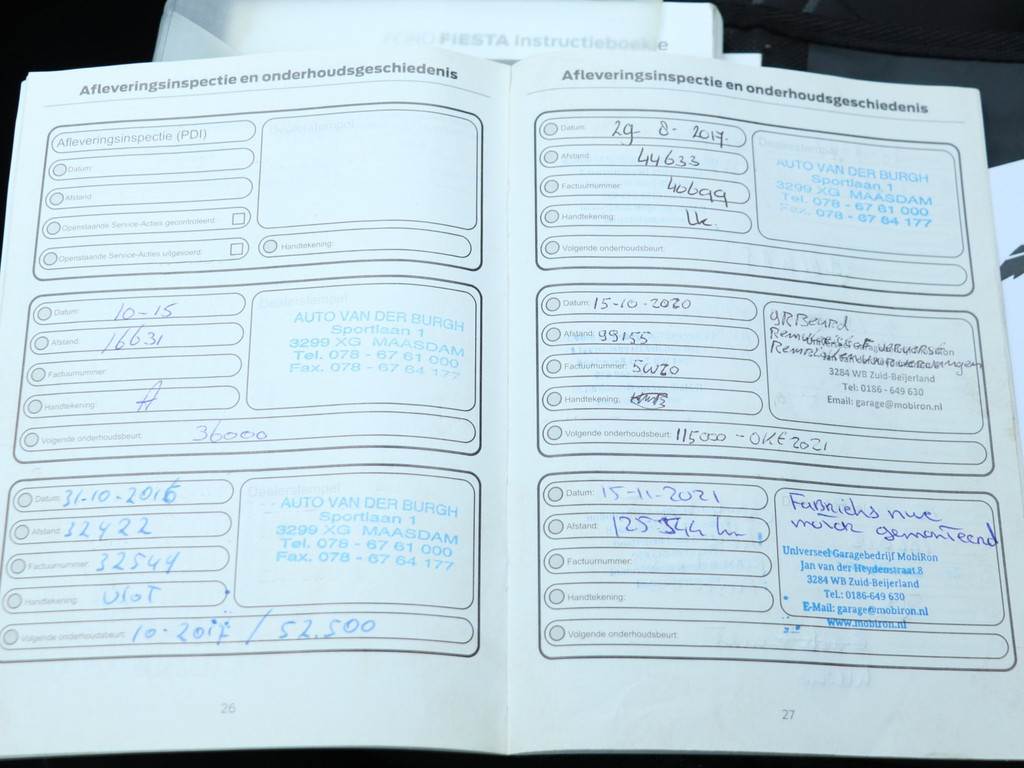 FORD FIESTA Instructieboekje
Afleveringsinspectie en onderhoudsgeschiedenis
Afleveringsinspectie (PDI)
Dealerstempel
Datum:
Afstand:
Openstaande Service-Acties gecontroleerd:
Openstaande Service-Acties uitgevoerd:
Handtekening:
Datum: 10-15
Afstand: 16631
Factuurnummer:
Handtekening:
Volgende onderhoudsbeurt: 36000
Dealerstempel
AUTO VAN DER BURGH
Sportlaan 1
3299 XG MAASDAM
Tel. 078 - 67 61 000
Fax. 078 - 67 64 177
Datum: 31-10-2016
Afstand: 32422
Factuurnummer: 32544
Handtekening: Vlot
Volgende onderhoudsbeurt: 10-2017 / 52.500
Dealerstempel
AUTO VAN DER BURGH
Sportlaan 1
3299 XG MAASDAM
Tel. 078 - 67 61 000
Fax. 078 - 67 64 177
26
Afleveringsinspectie en onderhoudsgeschiedenis
Datum: 29-8-2017
Afstand: 44633
Factuurnummer: 40699
Handtekening:
Volgende onderhoudsbeurt:
Dealerstempel
AUTO VAN DER BURGH
Sportlaan 1
3299 XG MAASDAM
Tel. 078 - 67 61 000
Fax. 078 - 67 64 177
Datum: 15-10-2020
Afstand: 99155
Factuurnummer: 5W20
Handtekening:
Volgende onderhoudsbeurt: 115000 - OKT 2021
gRBeurd
3284 WB Zuid-Beijerland
Tel: 0186 - 649 630
Email: garage@mobiron.nl
Datum: 15-11-2021
Afstand: 125344 km
Factuurnummer:
Handtekening:
Volgende onderhoudsbeurt:
Fabrieks nwe
motor gemonteerd
Universeel Garagebedrijf MobiRon
Jan van der Heydenstraat 8
3284 WB Zuid-Beijerland
Tel.: 0186-649 630
E-Mail: garage@mobiron.nl
www.mobiron.nl
27